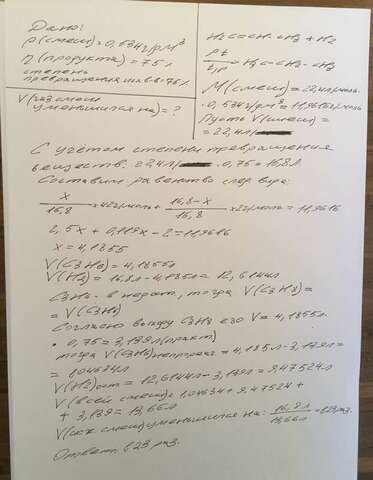 Дано:
ρ(смеси)=0,534г/дм³
η(продукта)=75%
степень
превращения исх. в-в=75%
V(газ. смеси
уменьшился на)=?
H₂C=CH-CH₃ + H₂
Pt
t,p → H₃C-CH₂-CH₃
M(смеси)=22,4л/моль
·0,534г/дм³=11,9616г/моль
Пусть V(смеси)=
=22,4л/
С учётом степени превращения
веществ: 22,4л/ ·0,75=16,8л
Составим равенство след. вида:
x/16,8 ·42г/моль + 16,8-x/16,8 ·2г/моль=11,9616
2,5x+0,119x-2=11,9616
x=4,1855
V(C₃H₆)=4,1855л
V(H₂)=16,8л-4,1855л=12,6144л
C₃H₆- в недост., тогда V(C₃H₆)=
=V(C₃H₈)
Согласно выходу C₃H₈ его V=4,1855л·
·0,75=3,139л(практ)
тогда V(C₃H₆)непрореаг=4,185л-3,139л=
=1,04634л
V(H₂)ост=12,6144л-3,139л=9,47524л
V(всей смеси)=1,04634+9,47524+
+3,139=13,66л
V(исх. смеси)уменьшился на: 16,8л/13,66л=1,23раз.
Ответ: 1,23 раз.